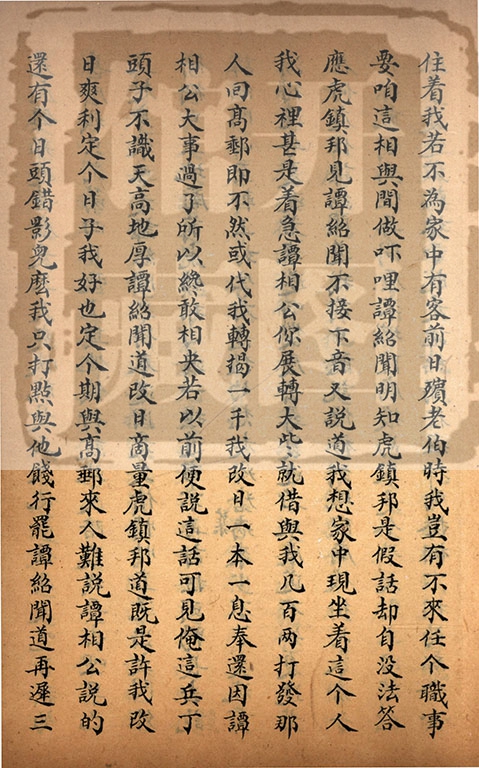 住着我若不為家中有客前日殯老伯時我豈有不來任个職事
要咱這相與間做吓哩譚紹聞明知虎鎮邦是假話却自没法答
應虎鎮邦見譚紹聞不接下音又説道我想家中現坐着這个人
我心裡甚是着急譚相公你展轉大些就借與我几百两打發那
人回髙郵即不然或代我轉揭一千我改日一本一息奉還因譚
相公大事過了所以終敢相央若以前便説這話可見俺這兵丁
頭子不識天高地厚譚紹聞道改日商量虎鎮邦道既是許我改
日爽利定个日子我好也定个期與髙郵來人難説譚相公説的
還有个日頭錯影兒麽我只打點與他餞行罷譚紹聞道再遲三